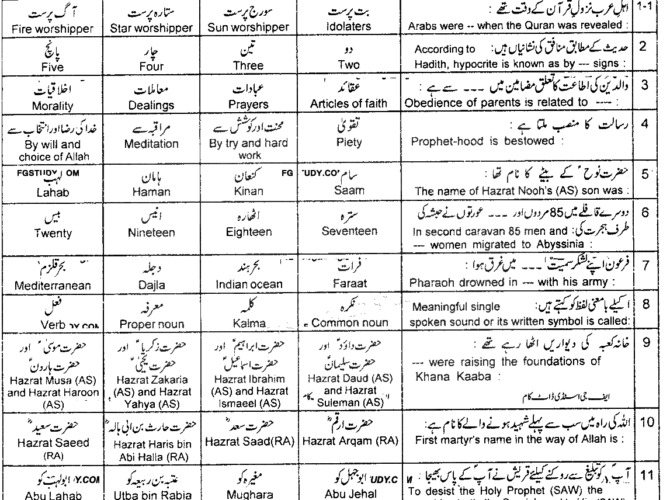 آگ پرست ستارہ پرست سورج پرست بت پرست اہل عرب نزول قرآن کے وقت تھے : 1-1
Fire worshipper Star worshipper Sun worshipper Idolaters Arabs were -- when the Quran was revealed :
پانچ چار تین دو حدیث کے مطابق منافق کی نشانیاں ہیں: According to 2
Five Four Three Two Hadith, hypocrite is known as by --- signs :
اخلاقیات معاملات عبادات عقائد والدین کی اطاعت کا تعلق مضامین میں ۔۔۔ سے ہے : 3
Morality Dealings Prayers Articles of faith Obedience of parents is related to ---- :
خدا کی رضا اور انتخاب سے مراقبہ سے محنت اور کوشش سے تقویٰ رسالت کا منصب ملتا ہے : 4
By will and choice of Allah Meditation By try and hard work Piety Prophet-hood is bestowed :
لہب ہامان کنعان سام حضرت نوحؑ کے بیٹے کا نام تھا : 5
Lahab Haman Kinan Saam The name of Hazrat Nooh's (AS) son was :
بیس انیس اٹھارہ سترہ دوسرے قافلے میں 85 مردوں اور ۔۔۔ عورتوں نے حبشہ کی 6
طرف ہجرت کی: In second caravan 85 men and
Twenty Nineteen Eighteen Seventeen --- women migrated to Abyssinia :
بحر قلزم دجلہ بحر ہند فرات فرعون اپنے لشکر سمیت ۔۔۔ میں غرق ہوا : 7
Mediterranean Dajla Indian ocean Faraat Pharaoh drowned in --- with his army :
فعل معرفہ کلمہ نکرہ اکیلے بامعنی لفظ کو کہتے ہیں: Meaningful single 8
Verb Proper noun Kalma Common noun spoken sound or its written symbol is called:
حضرت موسیٰؑ اور حضرت ہارونؑ حضرت زکریاؑ اور حضرت یحییٰؑ حضرت ابراہیمؑ اور حضرت اسماعیلؑ حضرت داؤدؑ اور حضرت سلیمانؑ خانہ کعبہ کی دیواریں اٹھا رہے تھے : 9
Hazrat Musa (AS) and Hazrat Haroon (AS) Hazrat Zakaria (AS) and Hazrat Yahya (AS) Hazrat Ibrahim (AS) and Hazrat Ismaeel (AS) Hazrat Daud (AS) and Hazrat Suleman (AS) --- were raising the foundations of Khana Kaaba :
ایف جی اسٹڈی ڈاٹ کام
حضرت سعیدؓ حضرت حارث بن ابی ہالہؓ حضرت سعدؓ حضرت ارقمؓ اللہ کی راہ میں سب سے پہلے شہید ہونے والے کا نام ہے: 10
Hazrat Saeed (RA) Hazrat Haris bin Abi Halla (RA) Hazrat Saad(RA) Hazrat Arqam (RA) First martyr's name in the way of Allah is :
ابولہب کو عتبہ بن ربیعہ کو مغیرہ کو ابوجہل کو آپؐ کو تبلیغ سے روکنے کیلئے قریش نے آپ کے پاس بھیجا : 11
Abu Lahab Utba bin Rabia Mughara Abu Jehal To desist the Holy Prophet (SAW) the